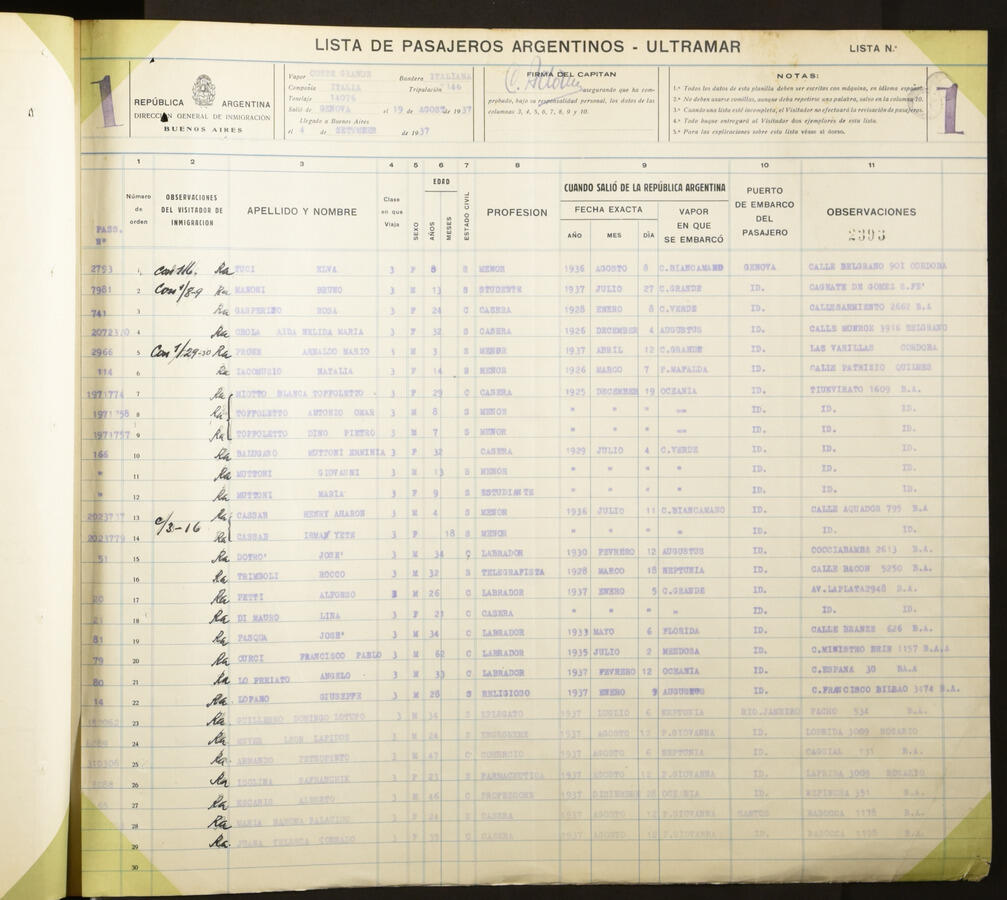 LISTA DE PASAJEROS ARGENTINOS - ULTRAMAR
LISTA N.°
1
REPÚBLICA ARGENTINA
DIRECCIÓN GENERAL DE INMIGRACIÓN
BUENOS AIRES
Vapor CONTE GRANDE Bandera ITALIANA
Compañía ITALIA Tripulación 146
Tonelaje 14076
Salió de GENOVA el 19 de AGOSTO de 1937
Llegado a Buenos Aires
el 4 de SETEMBER de 1937
FIRMA DEL CAPITAN
asegurando que ha com-
probado, bajo su responsabilidad personal, los datos de las
columnas 3, 4, 5, 6, 7, 8, 9 y 10.
NOTAS:
1.° Todos los datos de esta planilla deben ser escritos con máquina, en idioma español.
2.° No deben usarse comillas, aunque deba repetirse una palabra, salvo en la columna 10.
3.° Cuando una lista esté incompleta, el Visitador no efectuará la revisación de pasajeros.
4.° Todo buque entregará al Visitador dos ejemplares de esta lista.
5.° Para las explicaciones sobre esta lista véase al dorso.
1
1 2 3 4 5 6 7 8 9 10 11
Número de orden
OBSERVACIONES DEL VISITADOR DE INMIGRACION
APELLIDO Y NOMBRE
Clase en que Viaja
SEXO
EDAD
AÑOS
MESES
ESTADO CIVIL
PROFESION
CUANDO SALIÓ DE LA REPÚBLICA ARGENTINA
FECHA EXACTA
AÑO MES DÍA
VAPOR EN QUE SE EMBARCÓ
PUERTO DE EMBARCO DEL PASAJERO
OBSERVACIONES
2393
PASS. N°
2793 1 Ra TUCI ELVA 3 F 8 S MENOR 1936 AGOSTO 8 C.BIANCAMANO GENOVA CALLE BELGRANO 901 CORDOBA
7981 2 Ra MANONI BRUNO 3 M 13 S STUDENTE 1937 JULIO 27 C.GRANDE ID. CAGNATE DE GOMEZ S.FE'
741 3 Ra GASPERINO ROSA 3 F 24 C CASERA 1928 ENERO 8 C.VERDE ID. CALLESARMIENTO 2662 B.A
4 Ra CROLA AIDA NELIDA MARIA 3 F 32 S CASERA 1926 DECEMBER 4 AUGUSTUS ID. CALLE MONROE 3916 BELGRANO
2966 5 Ra ARNALDO MARIO M 3 S MENOR 1937 ABRIL 12 C.GRANDE ID. LAS VARILLAS CORDOBA
114 6 Ra IACOMUZIO NATALIA 3 F 14 S MENOR 1926 MARCO 7 P.MAFALDA ID. CALLE PATRIZIO QUILMES
1971774 7 Ra MIOTTO BLANCA TOFFOLETTO 3 F 29 C CASERA 1925 DECEMBER 19 OCEANIA ID. 1609 B.A.
1971758 8 Ra TOFFOLETTO ANTONIO OMAR 3 M 8 S MENOR " " " " ID. ID. ID.
1971757 9 Ra TOFFOLETTO DINO PIETRO 3 M 7 S MENOR " " " " ID. ID. ID.
166 10 Ra BALUGANO MUTTONI ERMINIA 3 F 32 CASERA 1929 JULIO 4 C.VERDE ID. ID. ID.
" 11 Ra MUTTONI GIOVANNI 3 M 13 S MENOR " " " " ID. ID. ID.
" 12 Ra MUTTONI MARIA 3 F 9 S ESTUDIANTE " " " " ID. ID. ID.
13 c/3-16 Ra CASSAB HENRY AHARON 3 M 4 S MENOR 1936 JULIO 11 C.BIANCAMANO ID. CALLE AQUADOR 795 B.A
2023779 14 Ra CASSAB 3 F 18 S MENOR " " " " ID. ID. ID.
51 15 Ra DOTRO' JOSE' 3 M 34 C LABRADOR 1930 FEVRERO 12 AUGUSTUS ID. COCCIABAMBA 2613 B.A.
16 Ra TRIMBOLI ROCCO 3 M 32 S TELEGRAFISTA 1928 MARCO 18 NEPTUNIA ID. CALLE BACON 5250 B.A.
20 17 Ra PETTI ALFONSO 3 M 26 C LABRADOR 1937 ENERO 5 C.GRANDE ID. AV.LAPLATA2948 B.A.
21 18 Ra DI MAURO LINA 3 F 21 C CASERA " " " " ID. ID. ID.
81 19 Ra PASQUA JOSE' 3 M 34 C LABRADOR 1933 MAYO 6 FLORIDA ID. CALLE BRANZE 626 B.A.
79 20 Ra CURCI FRANCISCO PABLO 3 M 62 C LABRADOR 1935 JULIO 2 MENDOSA ID. C.MINISTRO BRIN 1157 B.A.A
80 21 Ra LO PREIATO ANGELO 3 M 33 C LABRADOR 1937 FEVRERO 12 OCEANIA ID. C.ESPANA 30 BA.A
14 22 Ra LOFANO GIUSEPPE 3 M 26 S RELIGIOSO 1937 ENERO 9 AUGUSTUS ID. C.FRANCISCO BILBAO 3474 B.A.
23 Ra GUILLERMO DOMINGO LOTUFO 3 M 34 S 1937 LUGLIO 6 NEPTUNIA RIO.JANEIRO PACHO 534 B.A.
24 Ra MEYER LEON LAPIDUS 3 M 24 S 1937 AGOSTO 12 P.GIOVANNA ID. 3009 ROSARIO
310306 25 Ra ARMANDO 3 M 47 C COMERCIO 1937 AGOSTO 6 NEPTUNIA ID. 131 B.A.
26 Ra 3 F 23 S FARMACEUTICA 1937 AGOSTO 12 P.GIOVANNA ID. LAPRIDA 3009 ROSARIO
27 Ra ALBERTO 3 M 46 C PROFESSORE 1937 28 OCEANIA ID. ESPINOSA 351 B.A.
28 Ra MARIA RAMONA 3 F 24 S CASERA 1937 AGOSTO 12 P.GIOVANNA SANTOS 1178 B.A.
29 Ra JUANA 3 F 39 C CASERA 1937 AGOSTO 12 P.GIOVANNA ID. B.A.
30